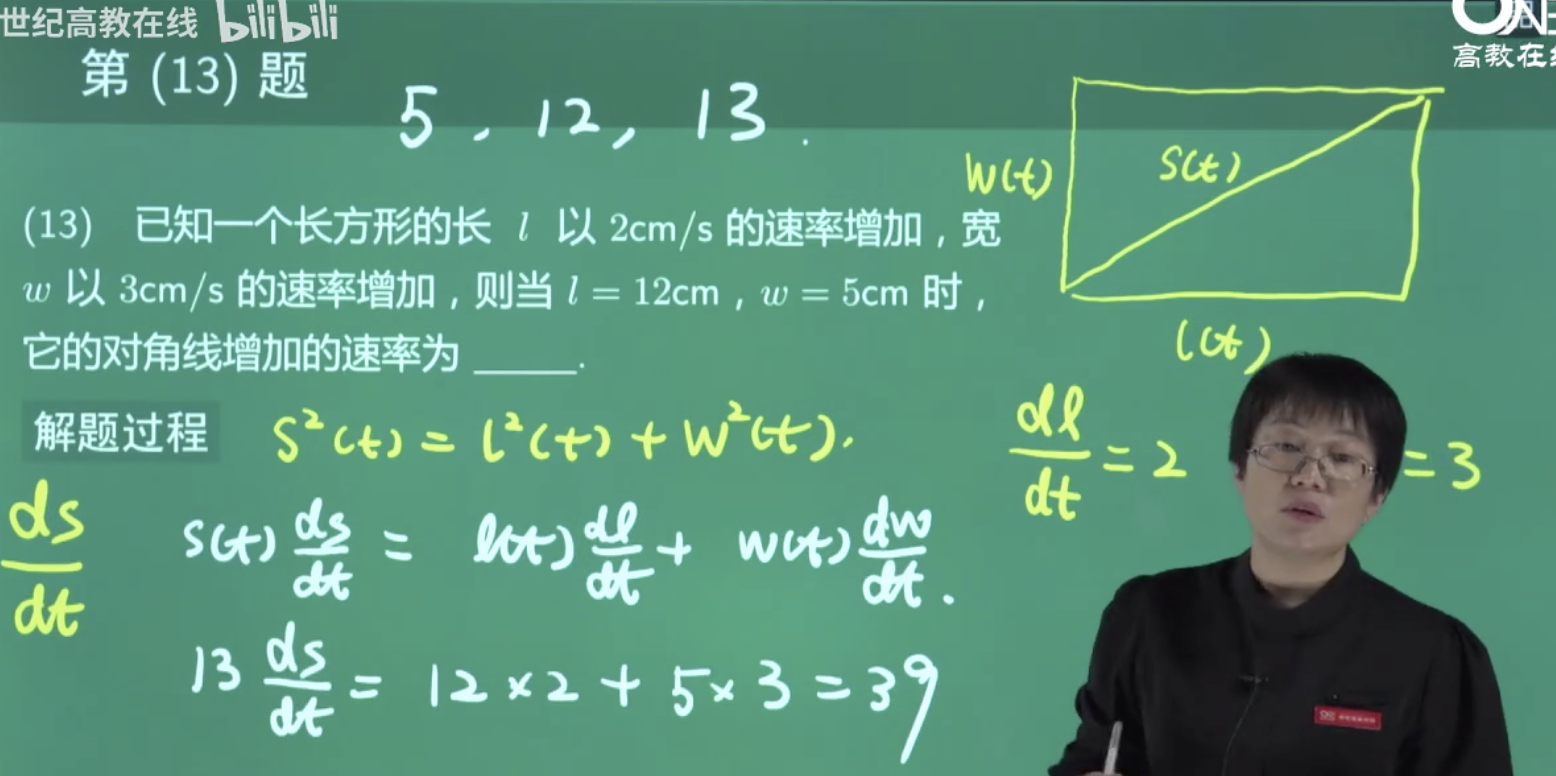 世纪高教在线 bilibili
高教在
第 (13) 题
5 , 12 , 13 .
W(t)
S(t)
l(t)
(13) 已知一个长方形的长 l 以 2cm/s 的速率增加，宽
w 以 3cm/s 的速率增加，则当 l = 12cm，w = 5cm 时，
它的对角线增加的速率为 _____.
解题过程 S²(t) = l²(t) + W²(t).
dl/dt = 2
= 3
ds/dt
S(t) ds/dt = l(t) dl/dt + W(t) dw/dt .
13 ds/dt = 12×2 + 5×3 = 39